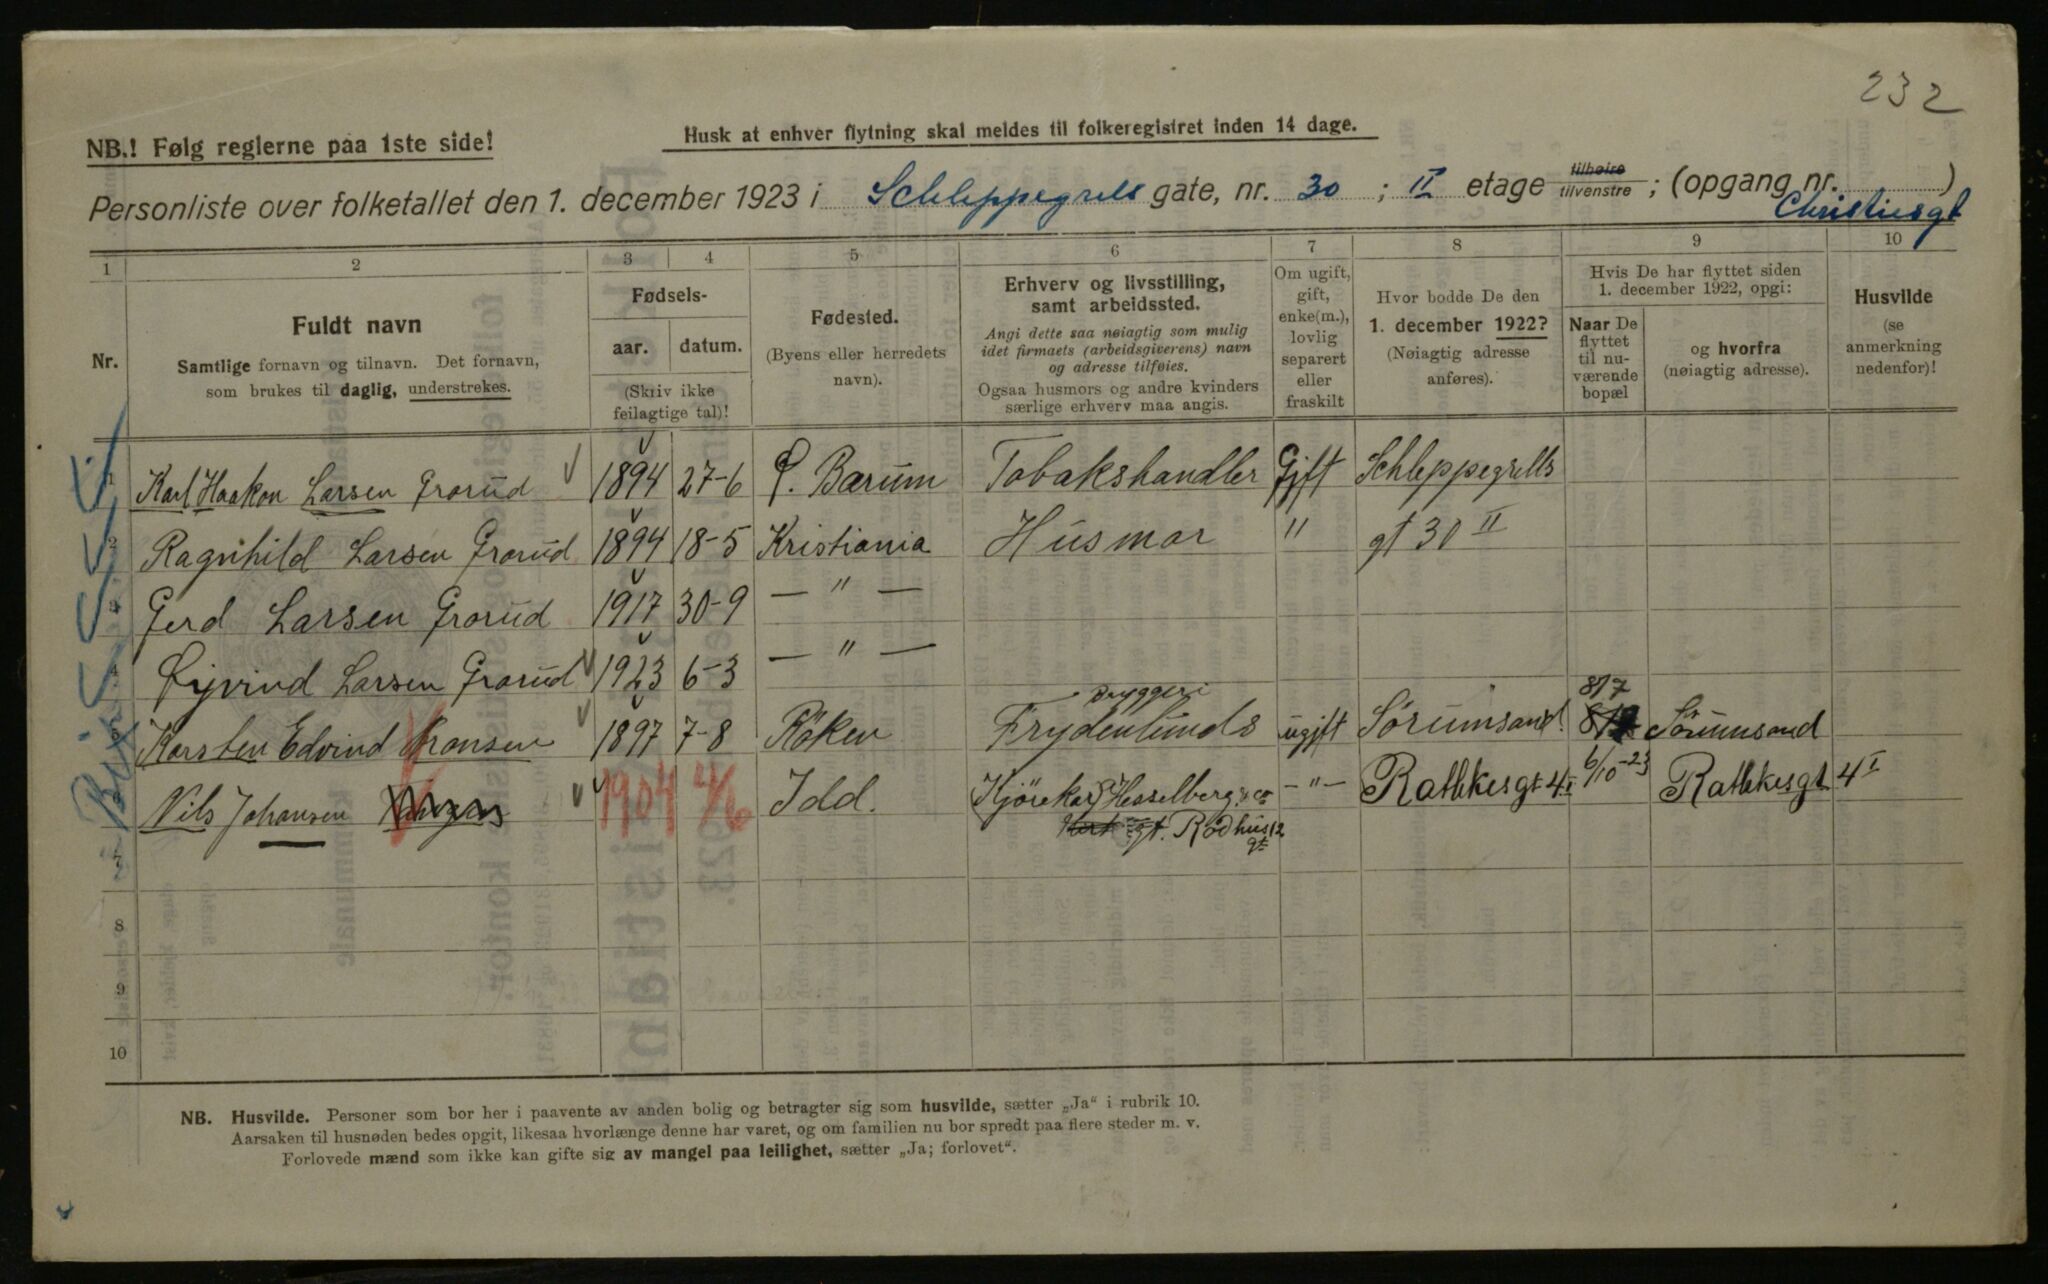 232
NB.! Følg reglerne paa 1ste side!
Husk at enhver flytning skal meldes til folkeregistret inden 14 dage.
Personliste over folketallet den 1. december 1923 i Schleppegrels gate, nr. 30 ; II etage tilhøire tilvenstre ; (opgang nr. )
Christiesgt
1 2 3 4 5 6 7 8 9 10
Nr.
Fuldt navn
Samtlige fornavn og tilnavn. Det fornavn,
som brukes til daglig, understrekes.
Fødsels-
aar. datum.
(Skriv ikke
feilagtige tal)!
Fødested.
(Byens eller herredets
navn).
Erhverv og livsstilling,
samt arbeidssted.
Angi dette saa nøiagtig som mulig
idet firmaets (arbeidsgiverens) navn
og adresse tilføies.
Ogsaa husmors og andre kvinders
særlige erhverv maa angis.
Om ugift,
gift,
enke(m.),
lovlig
separert
eller
fraskilt
Hvor bodde De den
1. december 1922?
(Nøiagtig adresse
anføres).
Hvis De har flyttet siden
1. december 1922, opgi:
Naar De
flyttet
til nu-
værende
bopæl
og hvorfra
(nøiagtig adresse).
Husvilde
(se
anmerkning
nedenfor)!
1 Karl Haakon Larsen Grorud 1894 27-6 Ø. Bærum Tobakshandler Gift Schleppegrells
2 Ragnhild Larsen Grorud 1894 18-5 Kristiania Husmor " gt 30 II
3 Gerd Larsen Grorud 1917 30-9 — " —
4 Øyvind Larsen Grorud 1923 6-3 — " —
Bryggeri 8/7
5 Karsten Edvind Aronsen 1897 7-8 Røken Frydenlunds ugift Sørumsand. Sørumsand
Nils Johansen 1904 Idd. Kjørekar Hesselberg & co -"- Rathkesgt 4 I 6/10-23 Rathkesgt 4 I
gt. Rådhus 12
gt
7
8
9
10
NB. Husvilde. Personer som bor her i paavente av anden bolig og betragter sig som husvilde, sætter „Ja“ i rubrik 10.
Aarsaken til husnøden bedes opgit, likesaa hvorlænge denne har varet, og om familien nu bor spredt paa flere steder m. v.
Forlovede mænd som ikke kan gifte sig av mangel paa leilighet, sætter „Ja; forlovet“.